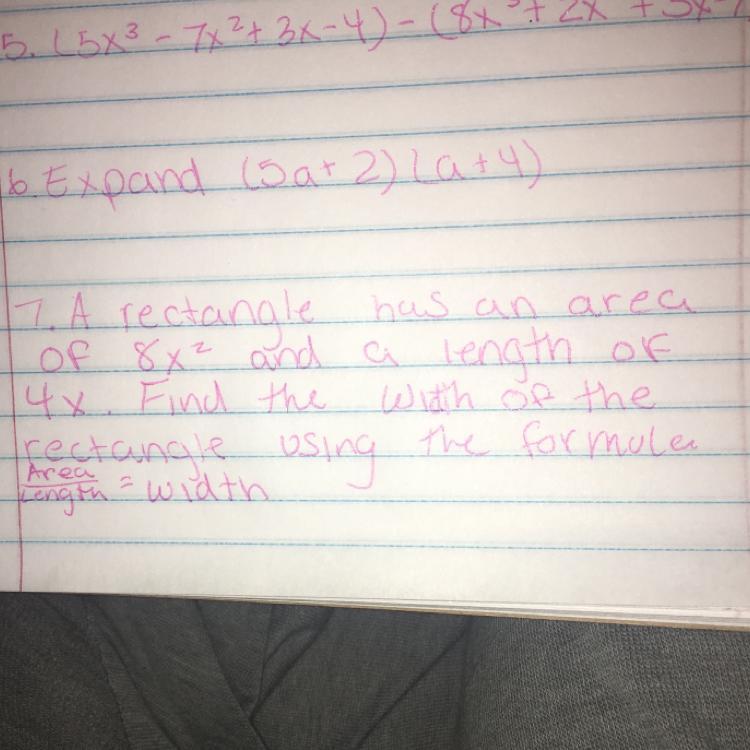 5. (5x³ - 7x² + 3x - 4) - (8x³ + 2x
6. Expand (5a + 2)(a + 4)
7. A rectangle has an area
of 8x² and a length of
4x. Find the width of the
rectangle using the formula
Area
Length = width